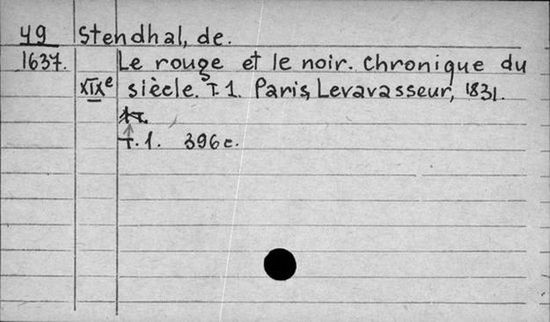 49 Stendhal, de.
1637. Le rouge et le noir. Chronique du
XIXe siècle. T. 1. Paris, Levavasseur, 1831.
T. 1. 396 c.